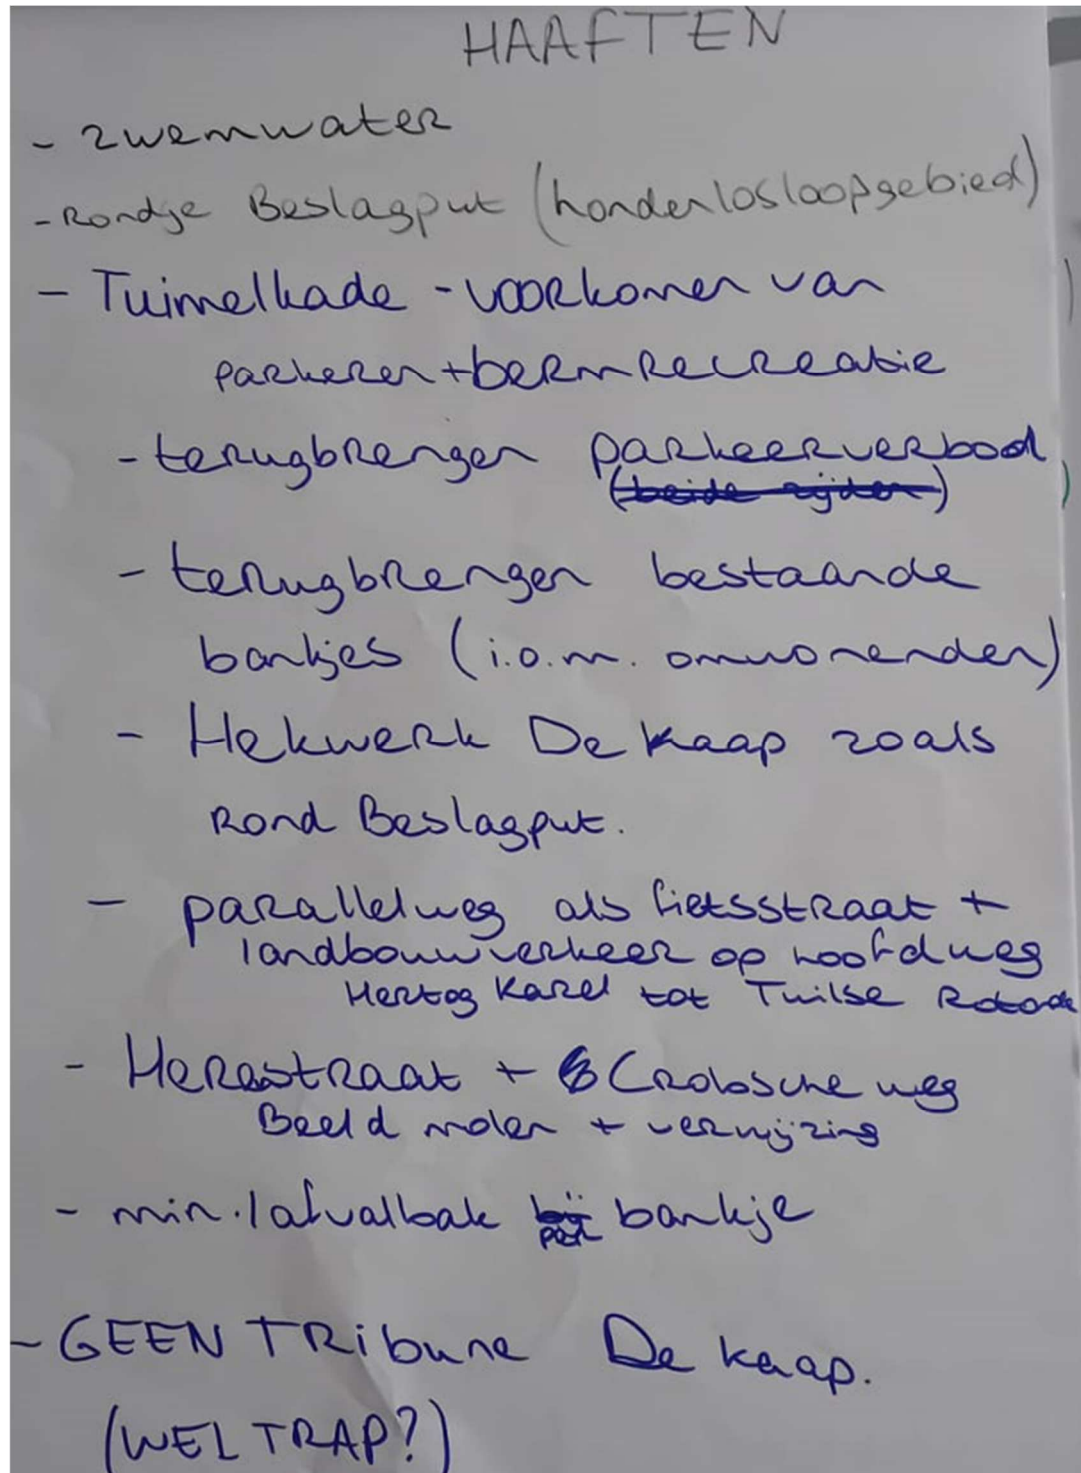 HAAFTEN
- zwemwater
- Rondje Beslagput (hondenlosloopgebied)
- Tuimelkade - voorkomen van
parkeren + bermrecreatie
- terugbrengen parkeerverbod
(beide zijden)
- terugbrengen bestaande
bankjes (i.o.m. omwonenden)
- Hekwerk De Kaap zoals
rond Beslagput.
- parallelweg als fietsstraat +
landbouwverkeer op hoofdweg
Hertog Karel tot Tuilse
- Herestraat + Crobsche weg
Beeld molen + verwijzing
- min. 1 afvalbak per bankje
- GEEN TRibune De kaap.
(WEL TRAP?)